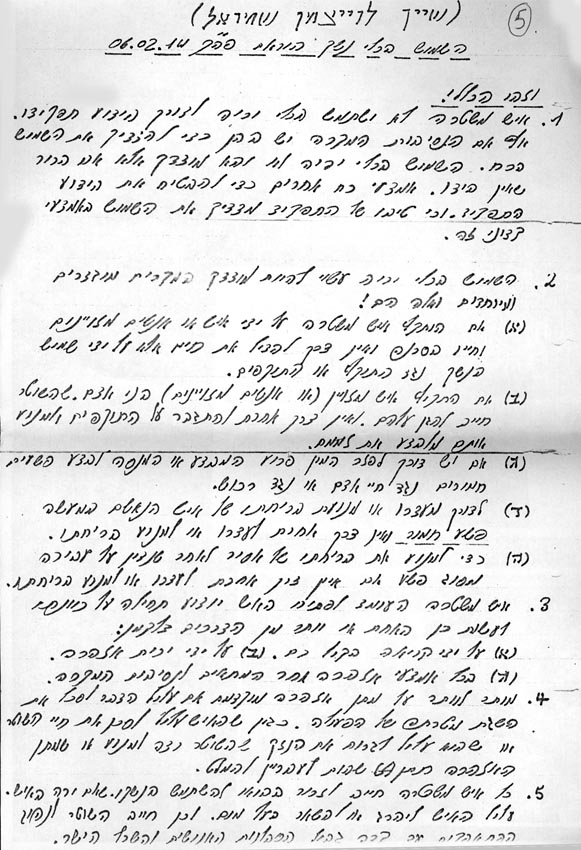 (נשיין לדייצמן ושמיראל)
5
השמוש בכלי נשק הוראת פק"ק 06.02.14
וזהו הכללי:
1. איש משטרה לא ישתמש בכלי יריה לצורך ביצוע תפקידו.
אף אם הנסיבות המקרה יש בהן כדי להצדיק את השמוש
בכח. השמוש בכלי יריה לא יהא מוצדק אלא אם ברור
שאין בידו. אמצעי כח אחרים כדי להבטיח את ביצוע
התפקיד. וכי טיבו של התפקיד מצדיק את השמוש באמצעי
קיצוני זה.
2. השמוש בכלי יריה עשוי להיות מוצדק במקרים מוגדרים
ומיוחדים ואלה הם:
(א) אם הותקף איש משטרה על ידי איש או אנשים מזויינים
וחייו בסכנה ואין דרך להציל את חייו אלא על ידי שמוש
בנשק נגד התוקף או התוקפים.
(ב) אם התקיף איש מזויין (או אנשים מזויינים) בני אדם. שהשוטר
חייב להגן עליהם. ואין דרך אחרת להתגבר על התוקפים ולמנוע
אותם מלבצע את זממם.
(ג) אם יש צורך לפזר המון פרוע המבצע או המנסה לבצע פשעים
חמורים נגד חיי אדם או נגד רכוש.
(ד) לצורך מעצרו או מניעת בריחתו של איש הנאשם במעשה
פשע חמור ואין דרך אחרת לעצרו או למנוע בריחתו.
(ה) כדי למנוע את בריחתו של אסיר לאחר שנדון על עבירה
מסוג פשע אם אין דרך אחרת לעצרו או למנוע בריחתו.
3. איש משטרה העומד לפתוח באש יודיע תחילה על כוונתו
לעשות כן באחת או יותר מן הדרכים דלקמן:
(א) על ידי קריאה בקול רם. (ב) על ידי ירית אזהרה.
(ג) בכל אמצעי אזהרה אחר המתאים לנסיבות המקרה.
4. מותר לוותר על מתן אזהרה מוקדמת אם עלול הדבר לסכל את
השגת מטרתם של הפעולה. כגון שהאיש עלול לסכן את חיי השוטר
או שהוא עלול לגרום את הנזק שהשוטר רצה למנוע או שמתן
האזהרה תיתן שהות לעבריין להמלט.
5. כל איש משטרה חייב לזכור בבואו להשתמש בנשקו. שאם ירה באיש.
עלול האיש ליהרג או להשאר בעל מום. ולכן חייב השוטר לנהוג
בגבול הסבלנות האנושית והשכל הישר.